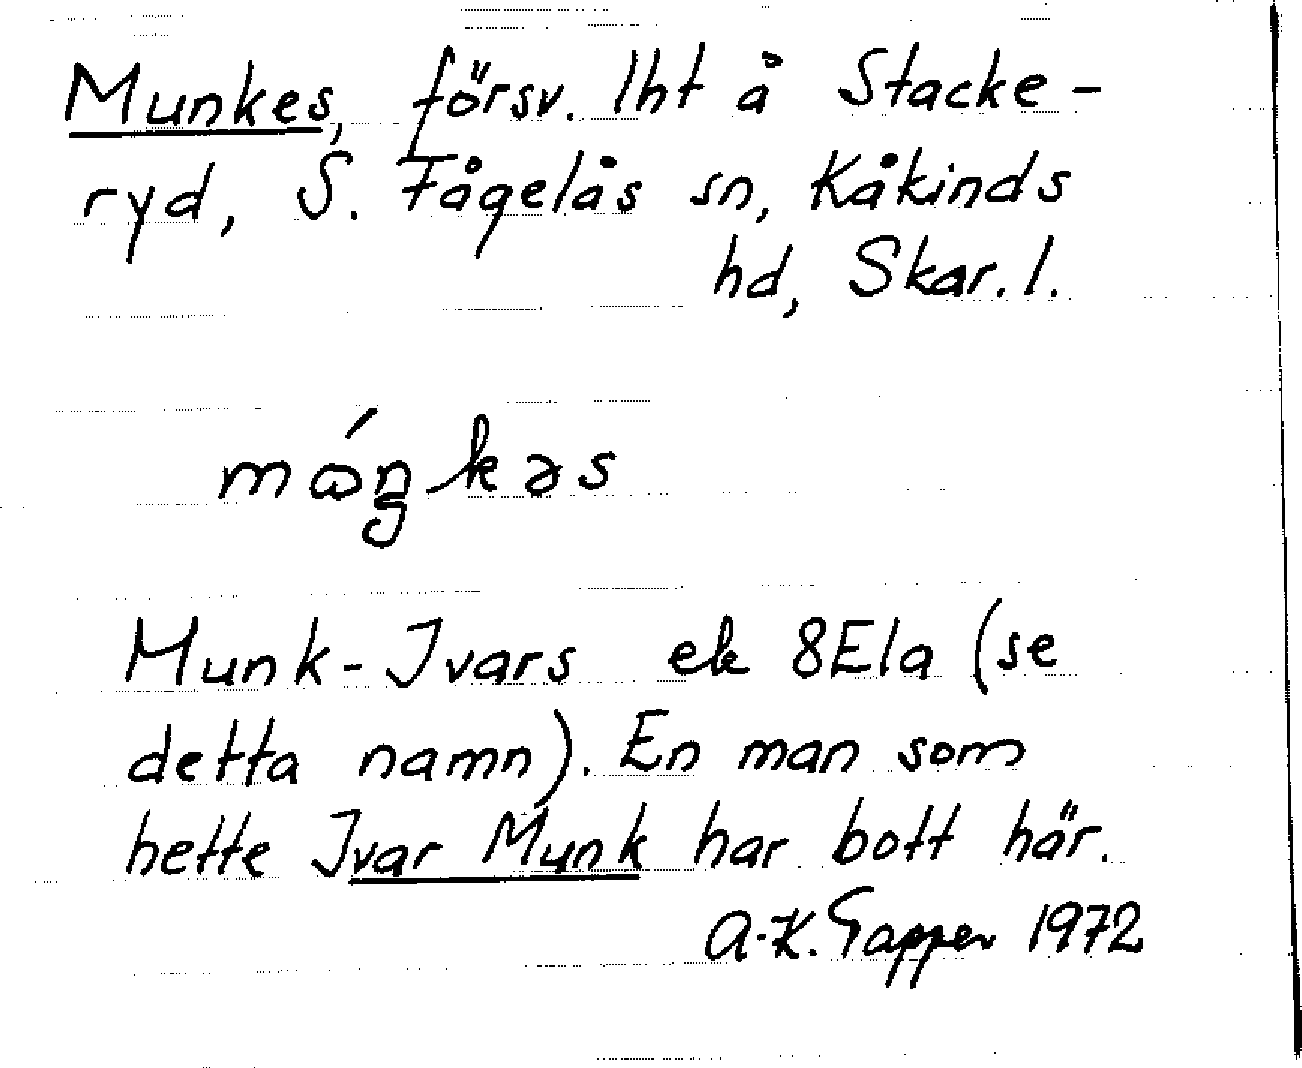 Munkes, försv. lht å Stacke-
ryd, S. Fågelås sn, Kåkinds
hd, Skar. l.
mɷ́ŋkəs
Munk-Ivars ek 8E1a (se
detta namn). En man som
hette Ivar Munk har bott här.
A-K. Tapper 1972